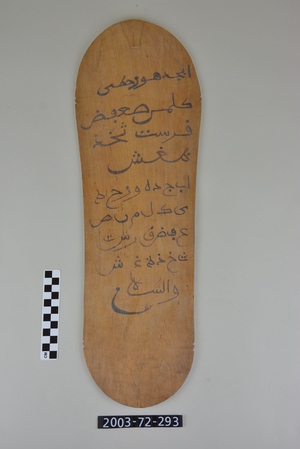 ابجد هوز حطى
كلمن صعفض
قرست ثخذ
ظغش
ا ب ج د ه و ز ح ط
ى ك ل م ن ص
ع ف ض ق ر س ت
ث خ ذ ظ غ ش
والسلام
2003-72-293